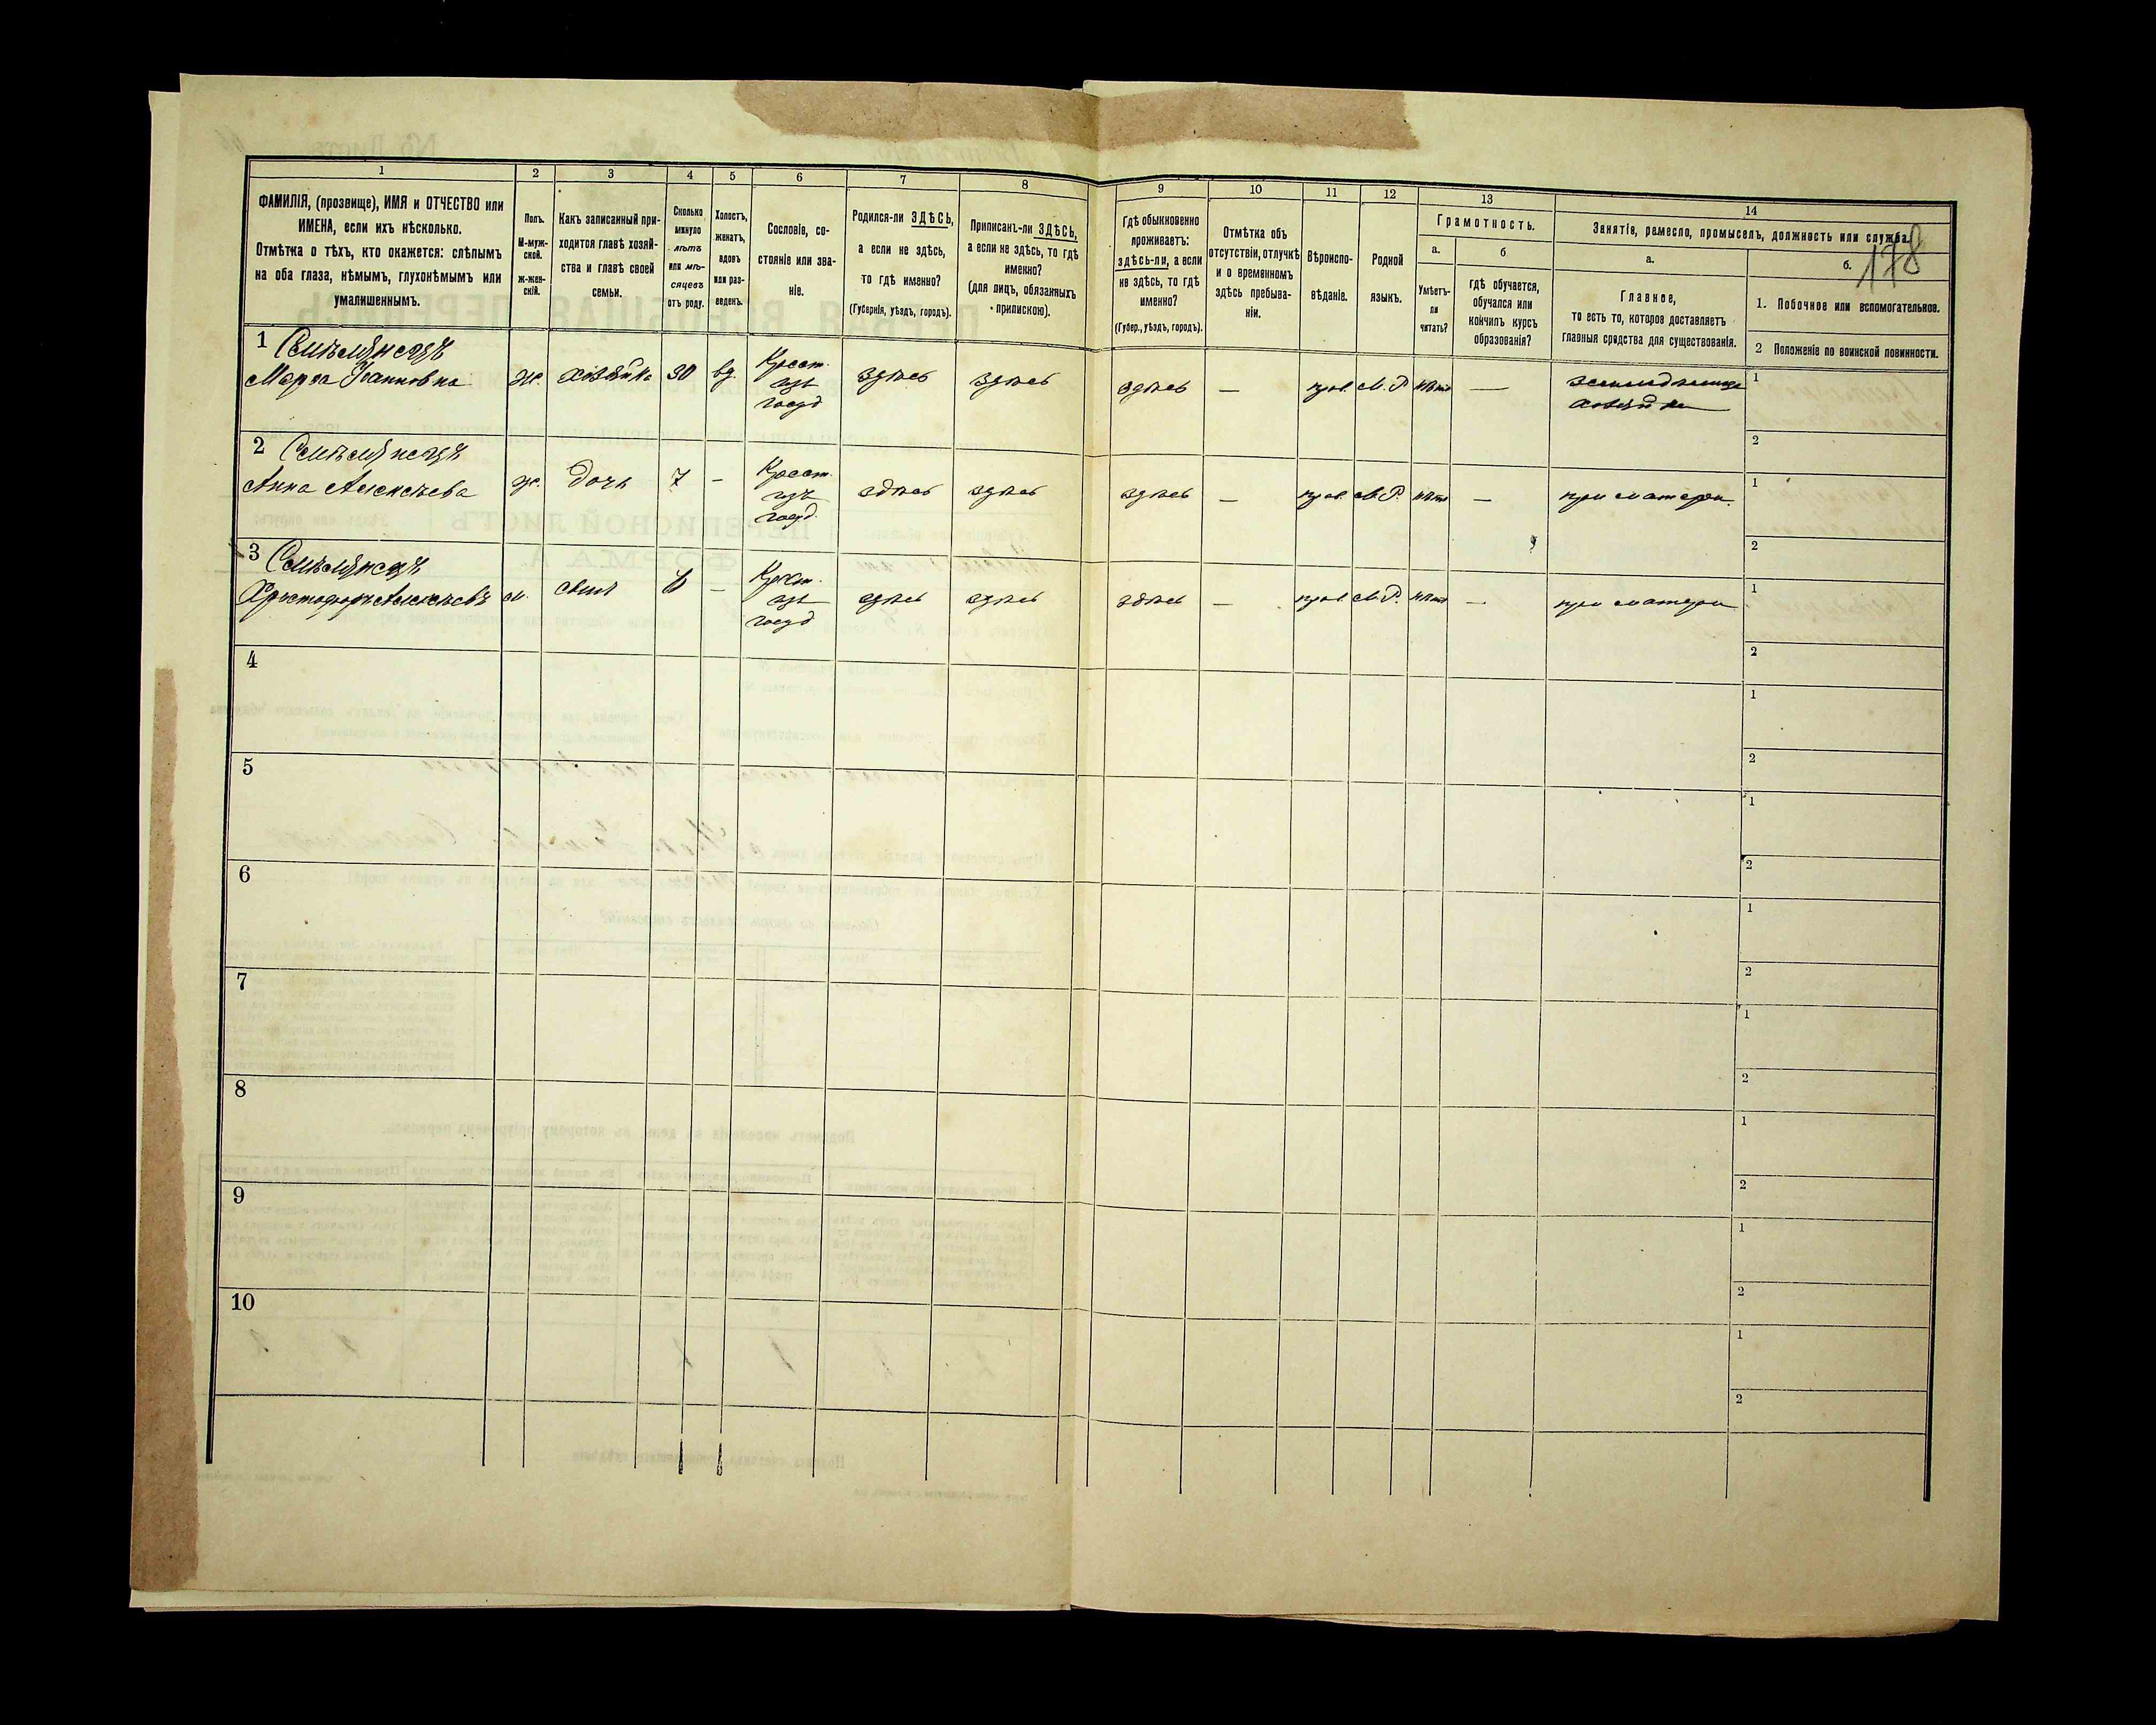 178
1 2 3 4 5 6 7 8 9 10 11 12 13 14
ФАМИЛІЯ, (прозвище), ИМЯ и ОТЧЕСТВО или
ИМЕНА, если ихъ нѣсколько.
Отмѣтка о тѣхъ, кто окажется: слѣпымъ
на оба глаза, нѣмымъ, глухонѣмымъ или
умалишеннымъ.
Полъ.
М-муж-
ской.
ж-жен-
скій.
Какъ записанный при-
ходится главѣ хозяй-
ства и главѣ своей
семьи.
Сколько
минуло
лѣтъ
или мѣ-
сяцевъ
отъ роду.
Холостъ,
женатъ,
вдовъ
или раз-
веденъ.
Сословіе, со-
стояніе или зва-
ніе.
Родился-ли ЗДѢСЬ,
а если не здѣсь,
то гдѣ именно?
(Губернія, уѣздъ, городъ).
Приписанъ-ли ЗДѢСЬ,
а если не здѣсь, то гдѣ
именно?
(для лицъ, обязанныхъ
припискою).
Гдѣ обыкновенно
проживаетъ:
здѣсь-ли, а если
не здѣсь, то гдѣ
именно?
(Губер., уѣздъ, городъ).
Отмѣтка объ
отсутствіи, отлучкѣ
и о временномъ
здѣсь пребыва-
ніи.
Вѣроиспо-
вѣданіе.
Родной
языкъ.
Грамотность.
а.
Умѣетъ-
ли
читать?
б
гдѣ обучается,
обучался или
кончилъ курсъ
образованія?
Занятія, ремесло, промыселъ, должность или служба.
а.
Главное,
то есть то, которое доставляетъ
главныя средства для существованія.
б.
1. Побочное или вспомогательное.
2 Положеніе по воинской повинности.
1
Марфа Іоанновна
ж.
хозяйка
30
вд.
Крест.
изъ
госуд
здѣсь
здѣсь
здѣсь
—
прав.
М. Р
нѣтъ
—
хозяйка
1
2
2
Анна Алексѣева
ж.
дочь
7
-
Крест.
изъ
госуд.
здѣсь
здѣсь
здѣсь
—
прав.
М. Р.
нѣтъ
—
при матери.
1
2
3
Христофоръ Алексѣевъ
м.
сынъ
—
Крест.
изъ
госуд
здѣсь
здѣсь
здѣсь
—
прав.
М. Р.
нѣтъ
—
при матери
1
2
4
1
2
5
1
2
6
1
2
7
1
2
8
1
2
9
1
2
10
1
2